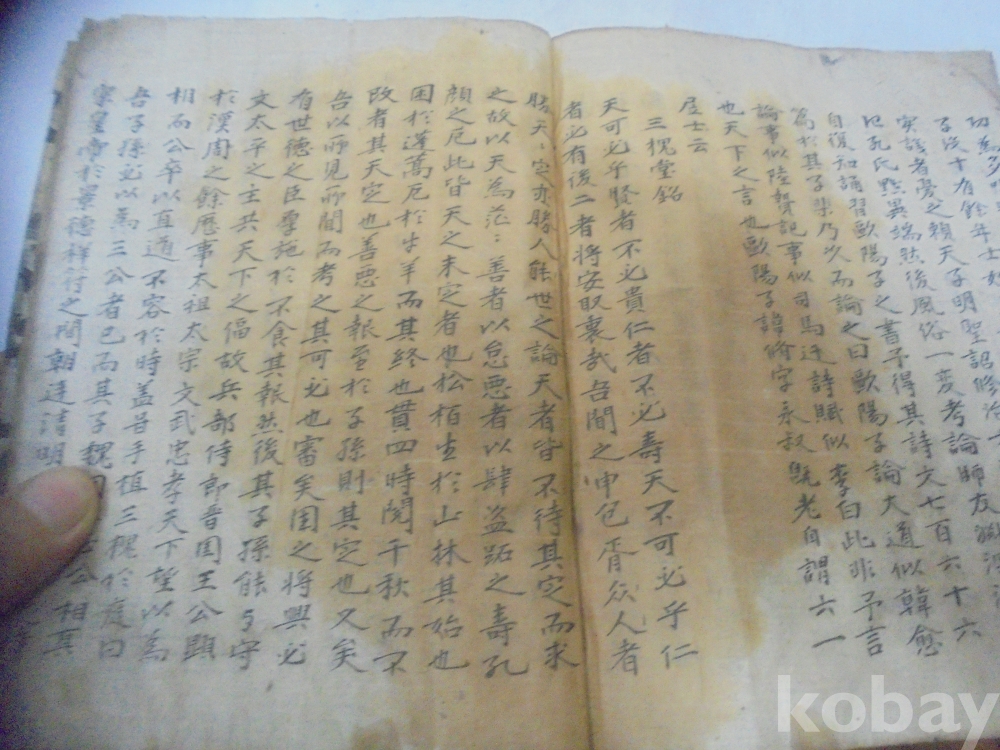 功為多
子沒十有餘年士
実識者憂之賴天子明聖詔修
已孔氏黜異端然後風俗一変考論師友
自復知誦習歐陽子之書予得其詩文七百六十六
篇於其子棐乃次而論之曰歐陽子論大道似韓愈
論事似陸贄記事似司馬迁詩賦似李白此非予言
也天下之言也歐陽子諱脩字永叔既老自謂六一
居士云
三槐堂銘
天可必乎賢者不必貴仁者不必壽天不可必乎仁
者必有後二者將安取衷哉吾聞之申包胥众人者
勝天〻定亦勝人能世之論天者皆不待其定而求
之故以天為茫〻善者以怠悪者以肆盗跖之壽孔
顔之厄此皆天之未定者也松栢生於山林其始也
困於蓬蒿厄於牛羊而其終也貫四時閱千秋而不
改者其天定也善悪之報至於子孫則其定也久矣
吾以所見所聞而考之其可必也審矣国之將興必
有世德之臣厚施於不食其報然後其子孫能与守
文太平之主共天下之福故兵部侍郎晋国王公顕
於漢周之餘歷事太祖太宗文武忠孝天下望以為
相而公卒以直道不容於時盖昔手植三槐於庭曰
吾子孫必以為三公者已而其子魏国公相真
宗皇帝於景德祥符之間朝廷清明
kobay